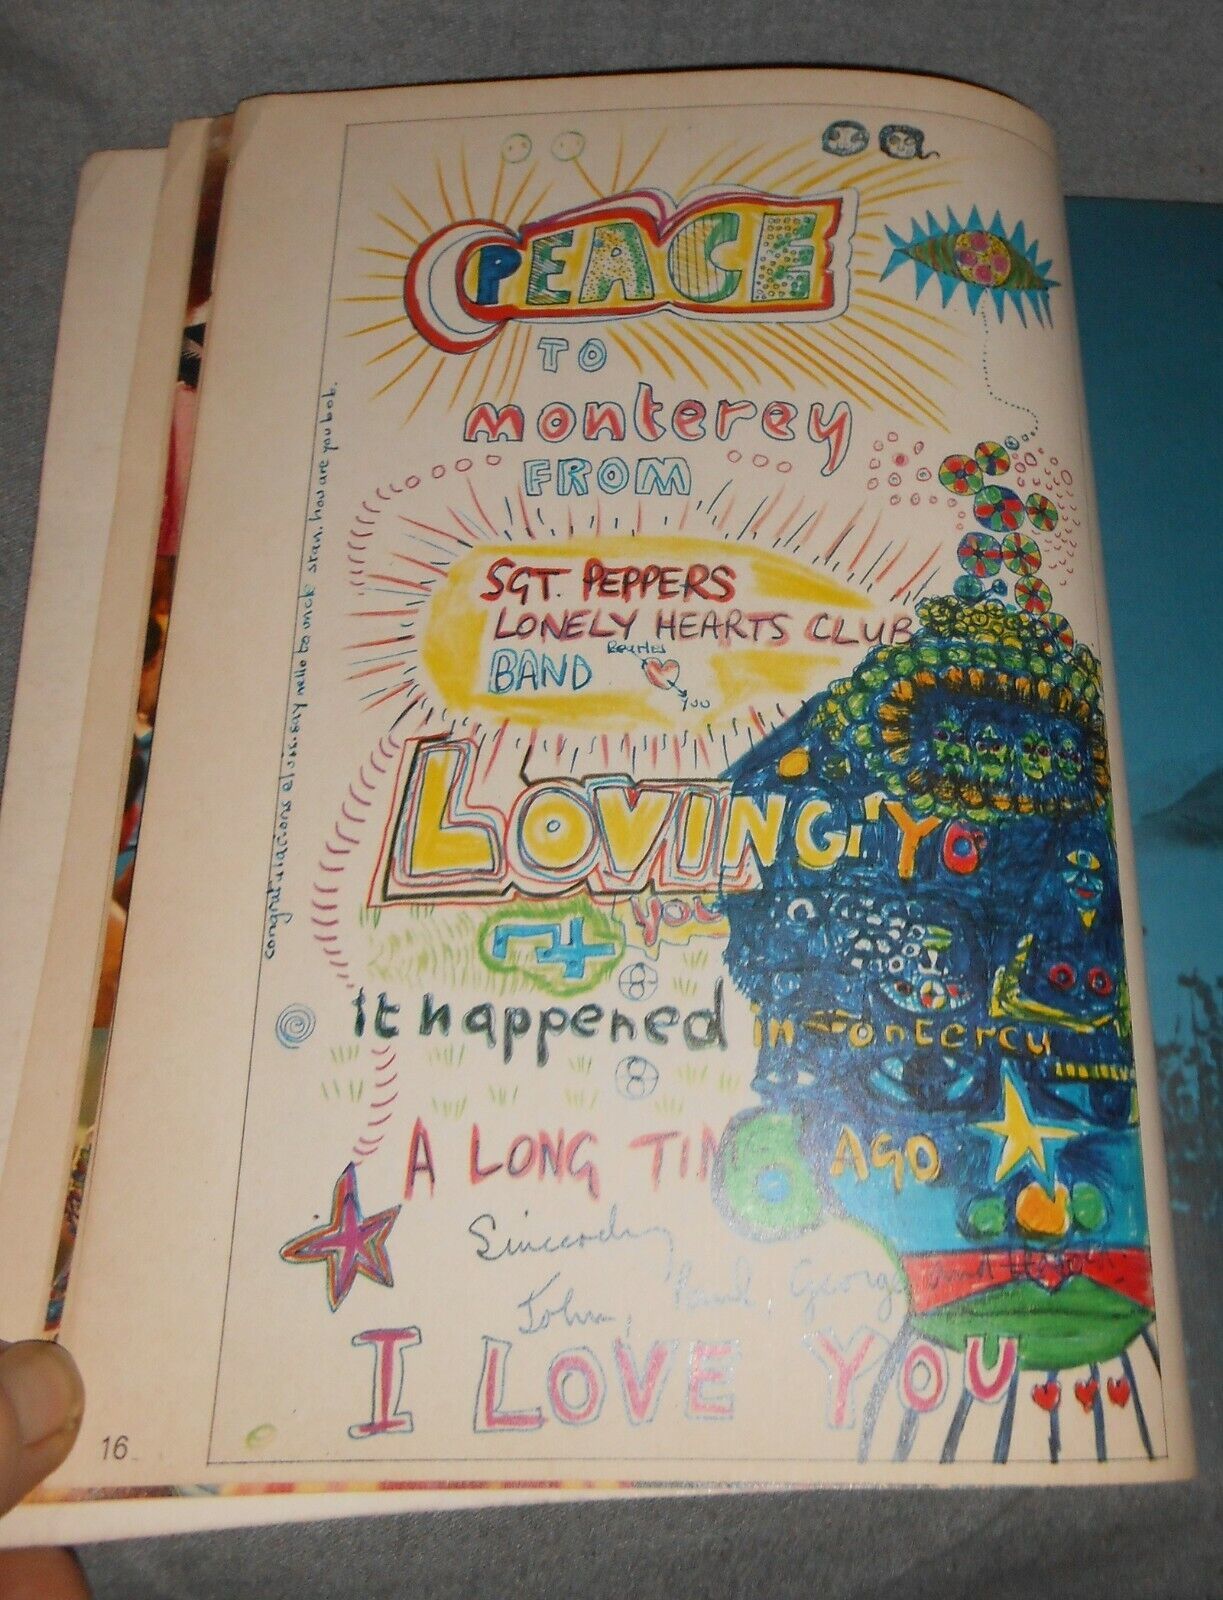 PEACE
TO
monterey
FROM
SGT. PEPPERS
LONELY HEARTS CLUB
BAND
Beatles
you
LOVING YO
you
it happened in monterey
A LONG TIME AGO
Sincerely
John, Paul, George and
I LOVE YOU
say hello to uncle stan. how are you bob.
16